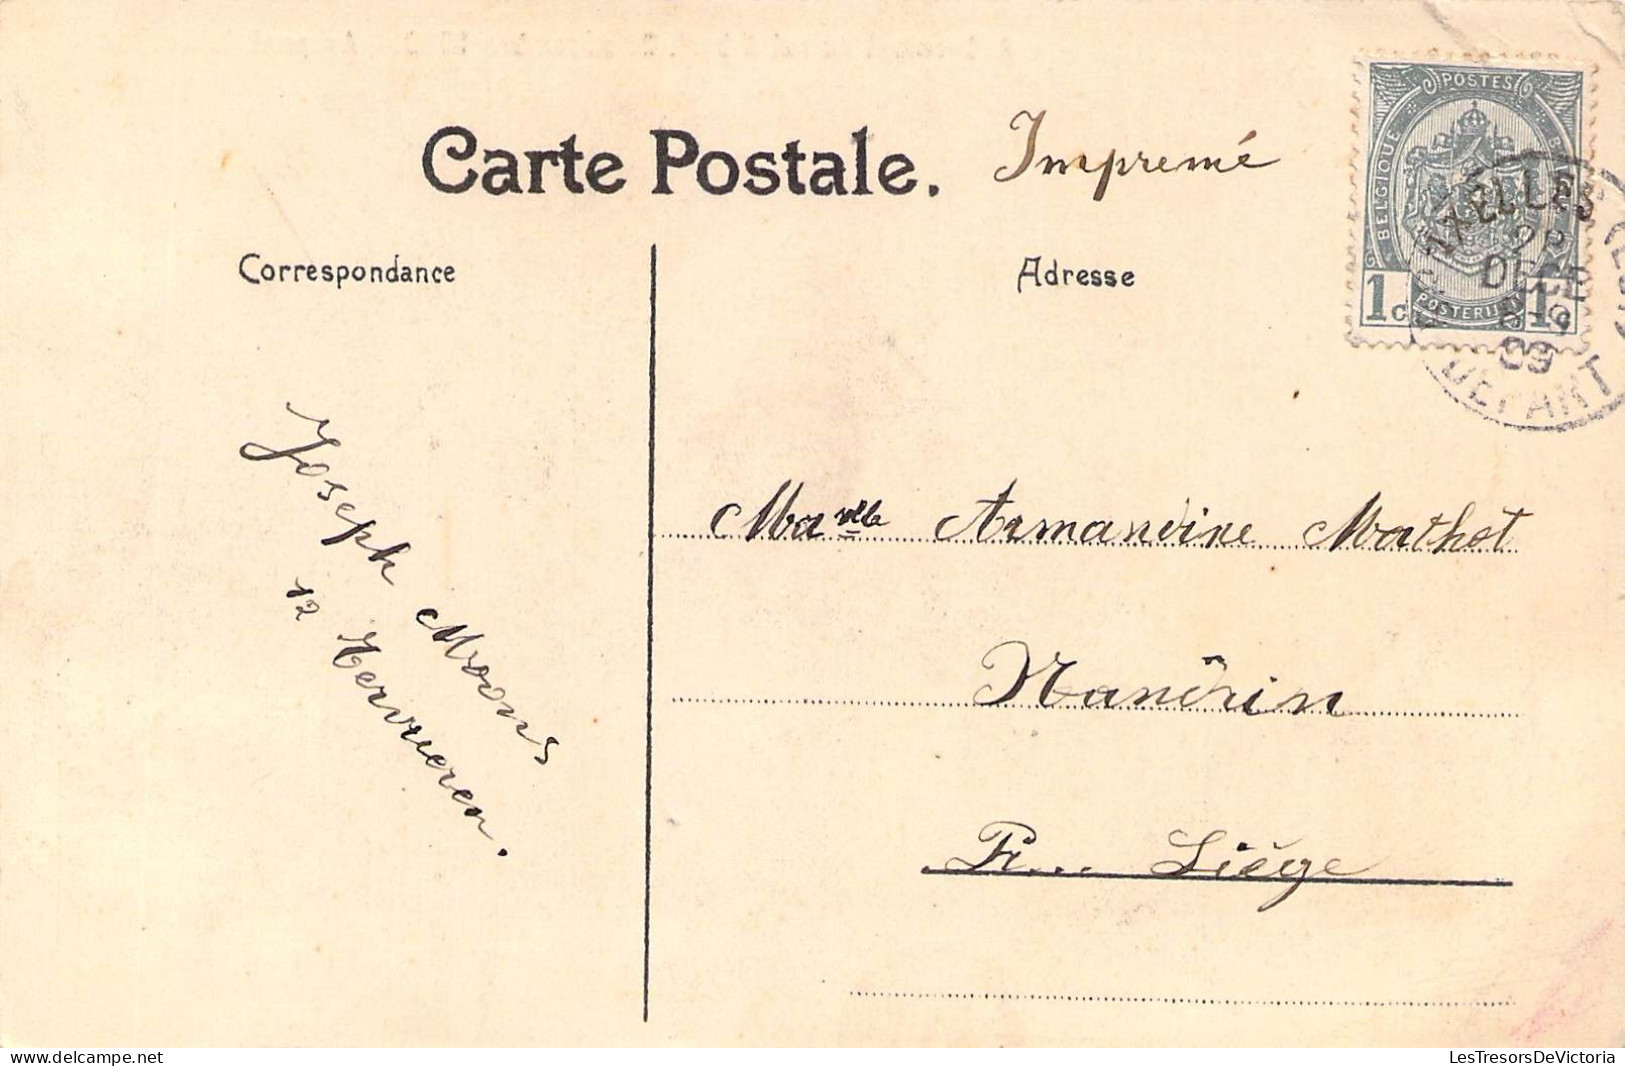 Carte Postale.
Impremé
POSTES
BELGIQUE
1c 1c
POSTERIJEN
IXELLES
DECE
8-9
09
DEPART
Correspondance
Adresse
Joseph Moons
12 Tervueren.
Ma vlle Armandine Mathot
Nandrin
Pr... Liége
LesTresorsDeVictoria